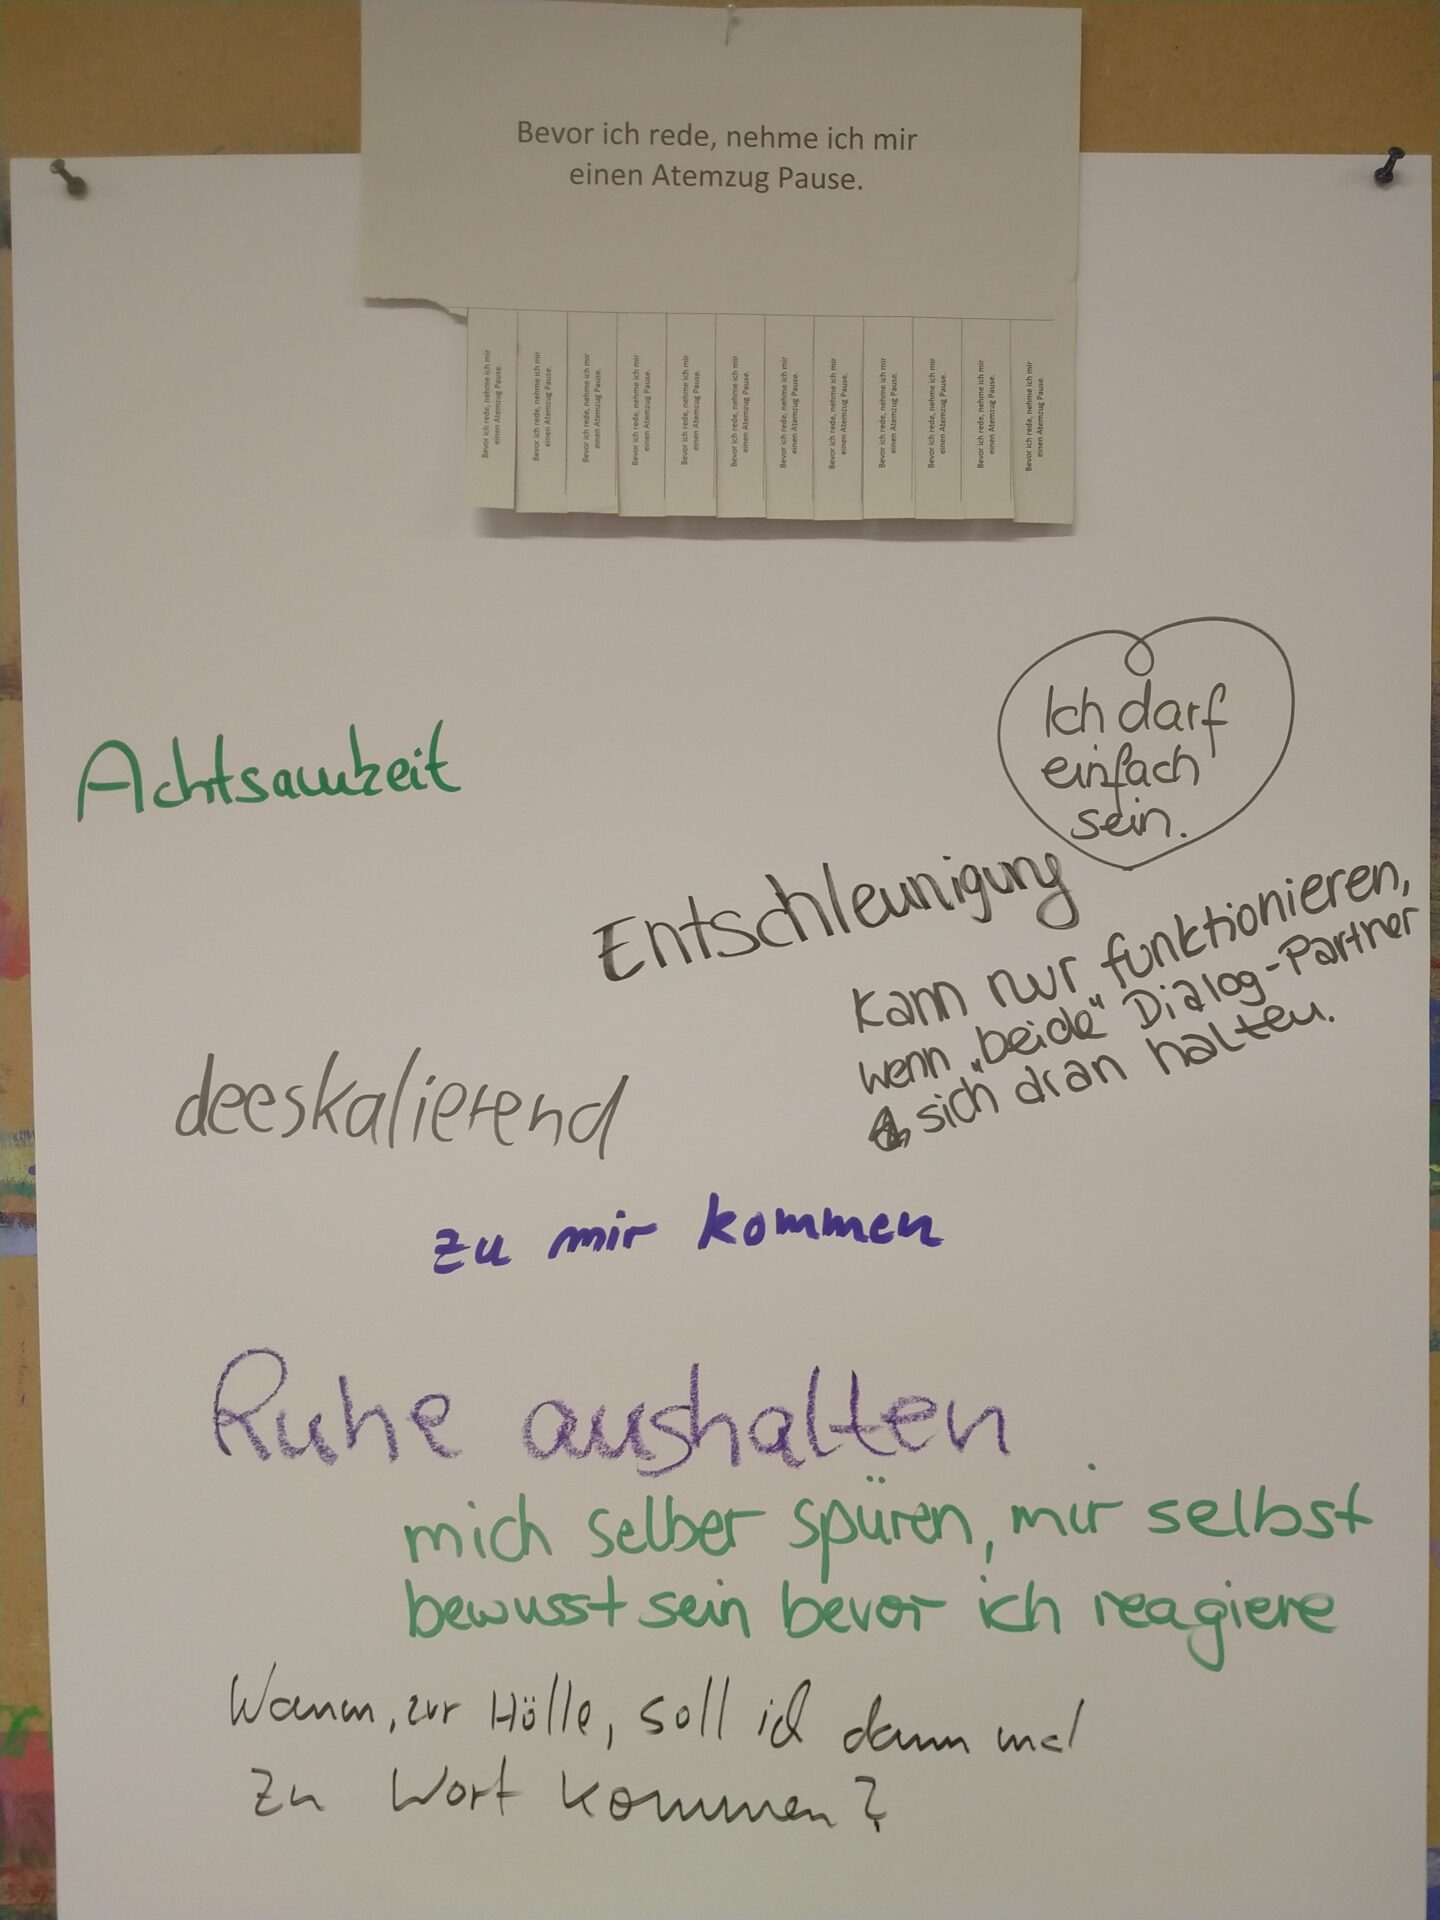 Bevor ich rede, nehme ich mir
einen Atemzug Pause.
Bevor ich rede, nehme ich mir
einen Atemzug Pause.
Bevor ich rede, nehme ich mir
einen Atemzug Pause.
Bevor ich rede, nehme ich mir
einen Atemzug Pause.
Bevor ich rede, nehme ich mir
einen Atemzug Pause.
Bevor ich rede, nehme ich mir
einen Atemzug Pause.
Bevor ich rede, nehme ich mir
einen Atemzug Pause.
Bevor ich rede, nehme ich mir
einen Atemzug Pause.
Bevor ich rede, nehme ich mir
einen Atemzug Pause.
Bevor ich rede, nehme ich mir
einen Atemzug Pause.
Bevor ich rede, nehme ich mir
einen Atemzug Pause.
Bevor ich rede, nehme ich mir
einen Atemzug Pause.
Bevor ich rede, nehme ich mir
einen Atemzug Pause.
Ich darf
einfach
sein.
Achtsamkeit
Entschleunigung
Kann nur funktionieren,
wenn „beide" Dialog-Partner
sich dran halten.
deeskalierend
zu mir kommen
Ruhe aushalten
mich selber spüren, mir selbst
bewusst sein bevor ich reagiere
Wann, zur Hölle, soll ich dann mal
zu Wort kommen?